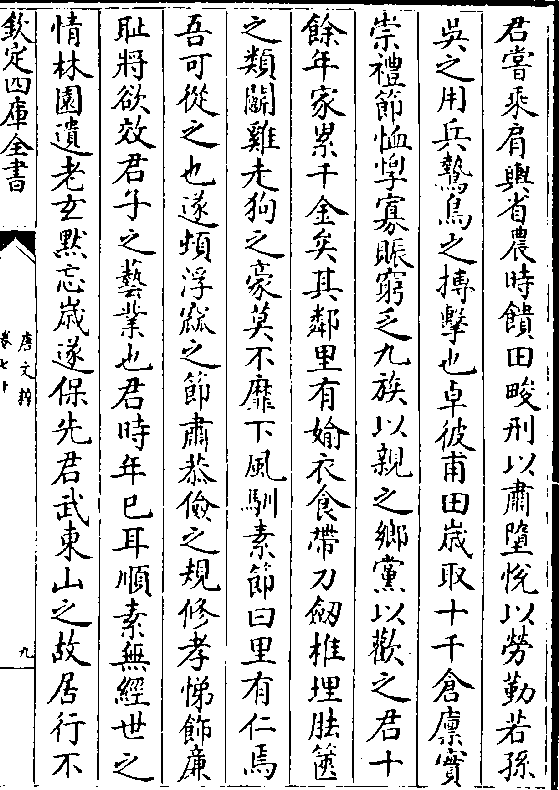 君嘗乘肩輿省農時饋田畯刑以肅墮悅以勞勤若孫
吳之用兵鷙鳥之搏擊也卓彼甫田歲取十千倉廪實
崇禮節恤惸寡賑窮乏九族以親之鄉黨以歡之君十
餘年家累千金矣其鄰里有媮衣食帶刀劒椎埋胠篋
之類鬭雞走狗之豪莫不靡下風馴素節曰里有仁焉
吾可從之也遂頓浮窳之節肅恭儉之規修孝悌飾廉
耻將欲效君子之藝業也君時年已耳順素無經世之
情林園遺老玄默忘歲遂保先君武東山之故居行不
欽定四庫全書
唐文粹
卷七十
九